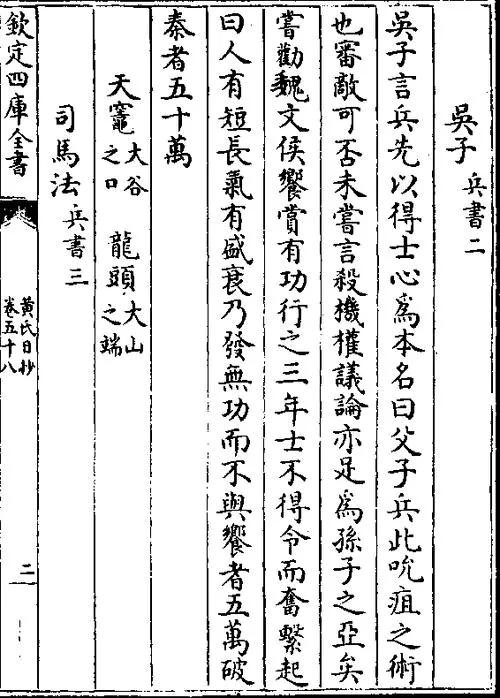 吳子兵書二
吳子言兵先以得士心爲本名曰父子兵此吮疽之術
也審敵可否未嘗言殺機權議論亦足爲孫子之亞矣
嘗勸魏文侯饗賞有功行之三年士不得令而奮繫起
曰人有短長氣有盛衰乃發無功而不與饗者五萬破
秦者五十萬
天竈大谷之口 龍頭大山之端
司馬法兵書三
欽定四庫全書
黃氏日抄
卷五十八
二